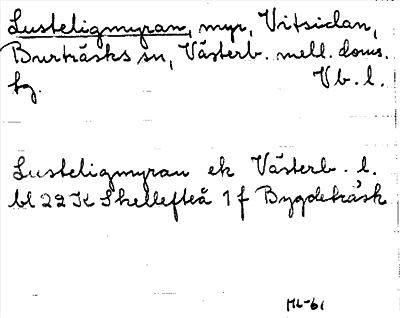 Lusteligmyran, myr, Vitsidan,
Burträsks sn, Västerb. mell. doms.
fg. Vb. l.
Lusteligmyran ek Västerb. l.
bl 22 K Skellefteå 1 f Bygdeträsk
ML-61